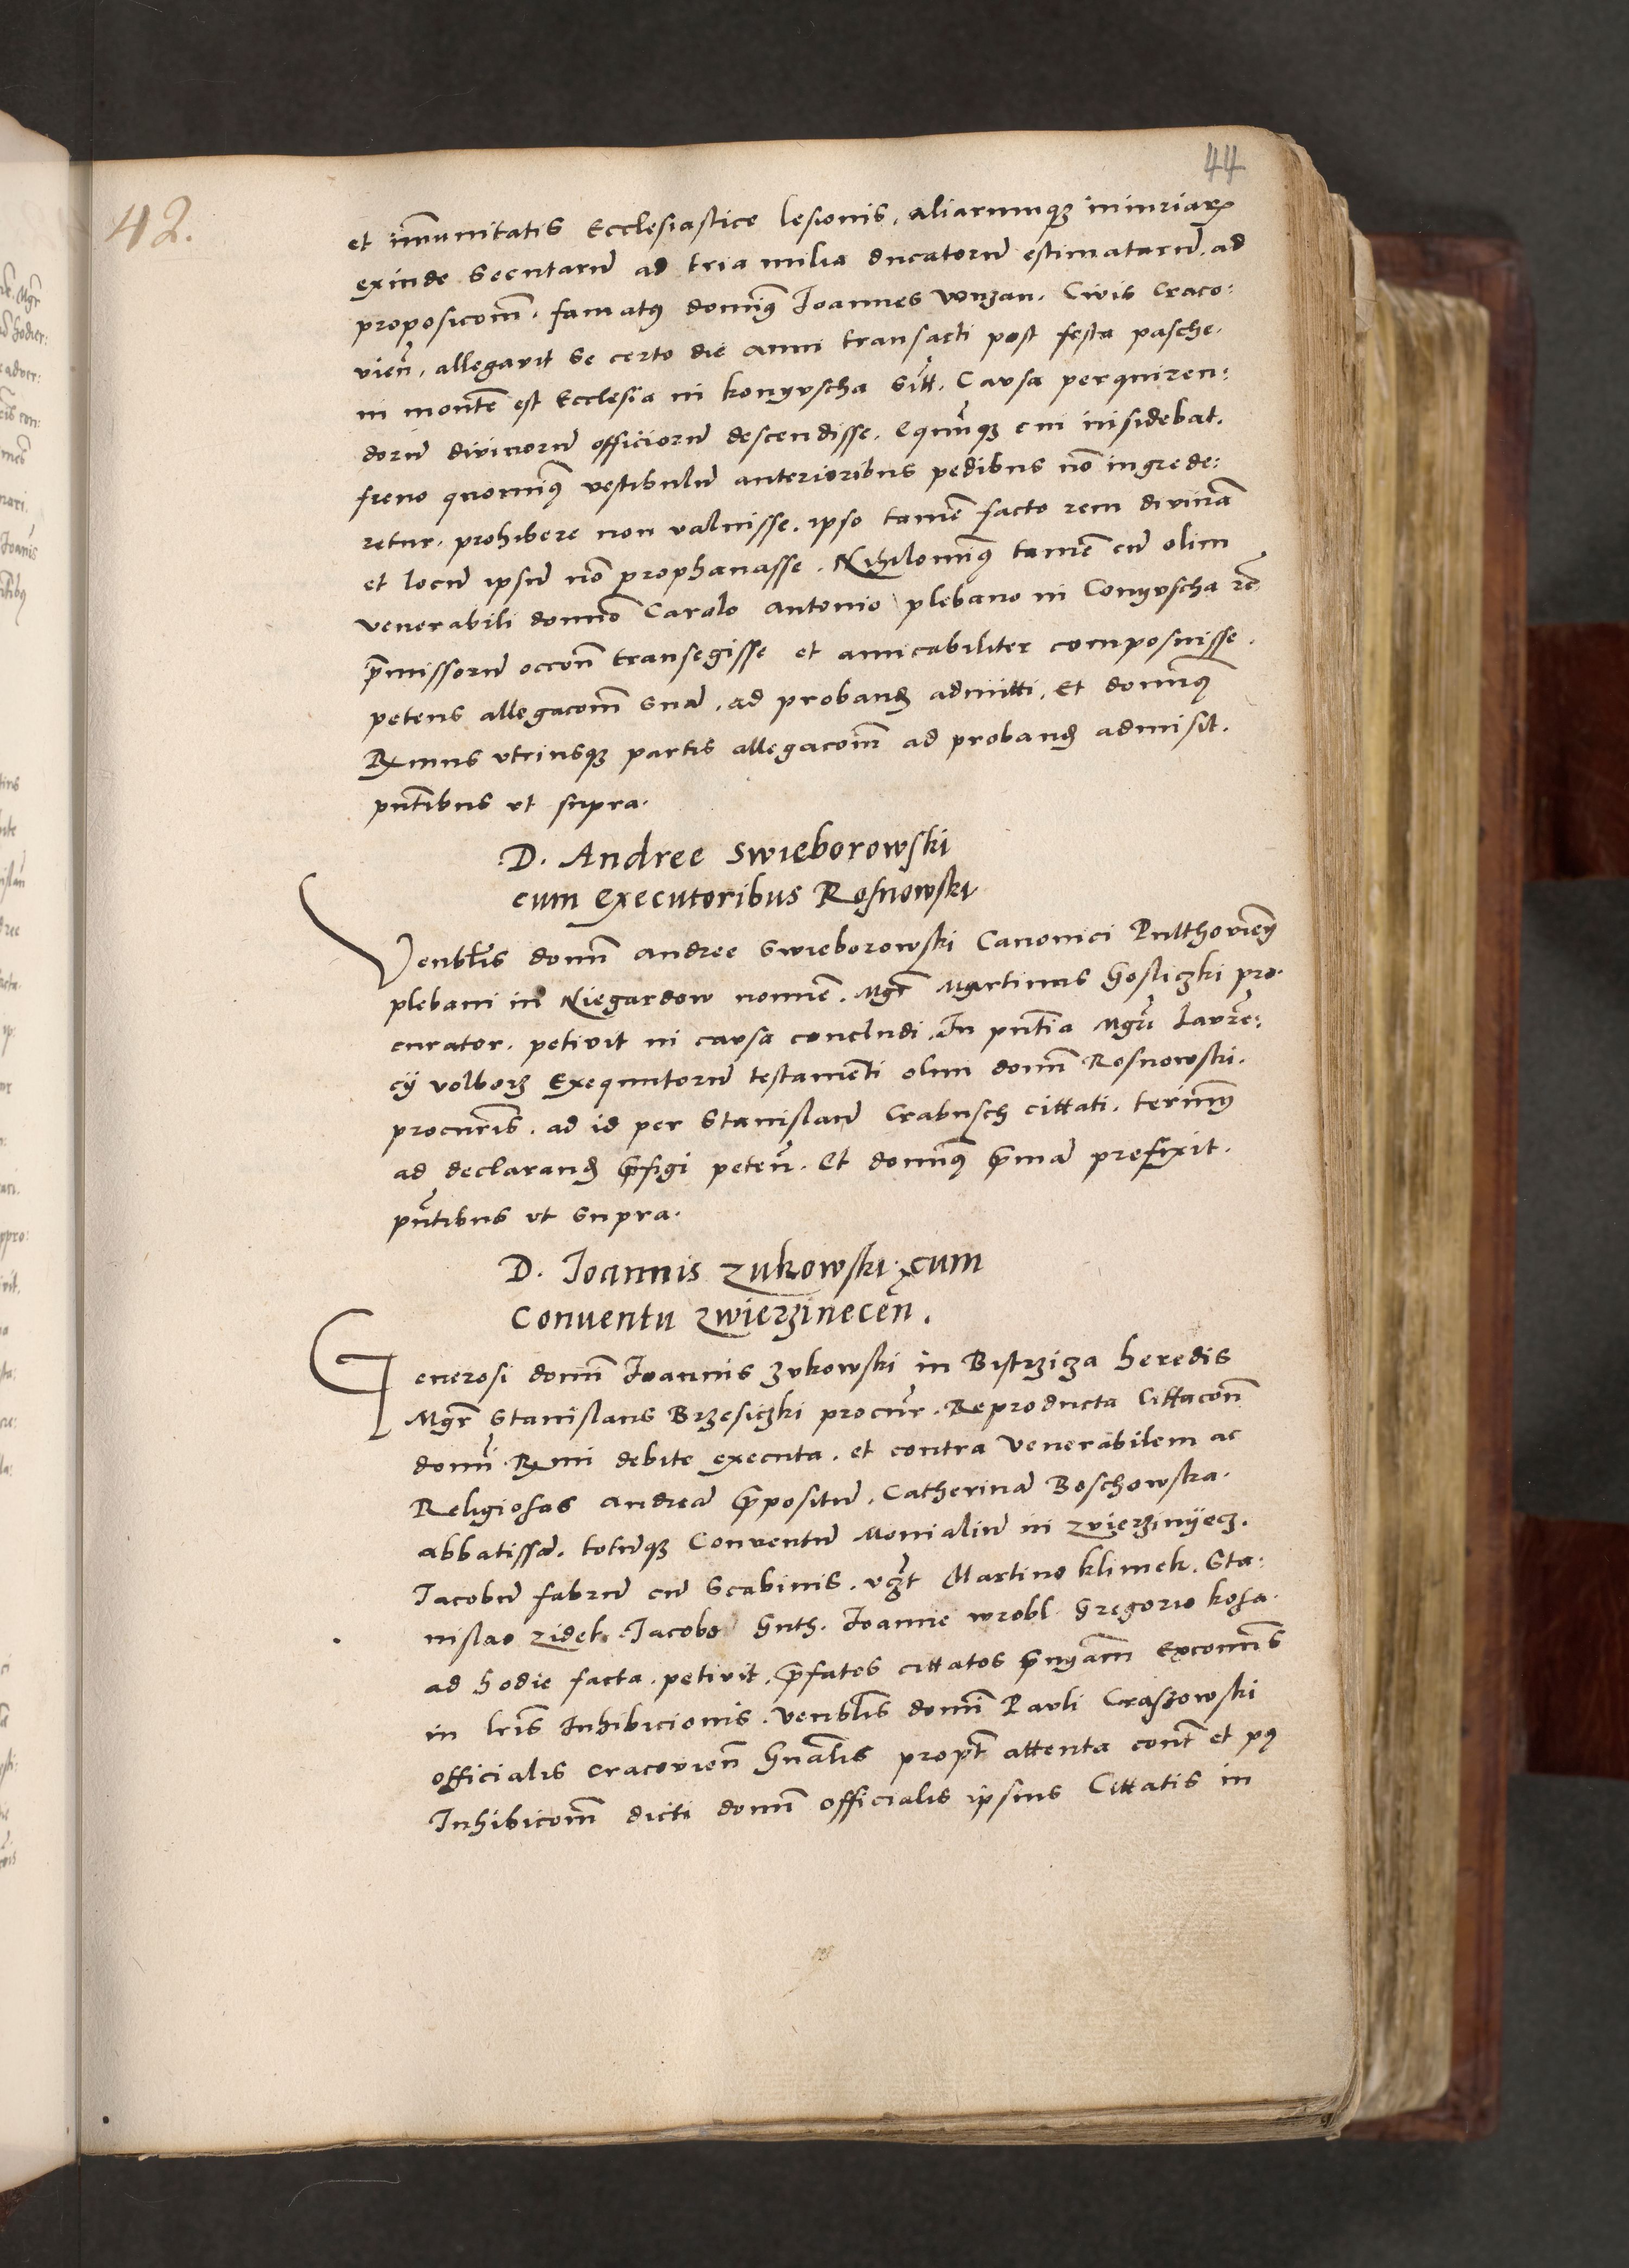 44
42.
et im̄unitatis Ecclesiastice lesionis, aliarumqꝫ iniuriaꝝ
exinde secutarū ad tria milia ducatorū estimatarū, ad
proposicoēm, famatꝰ dominꝰ Joannes vonzan, Civis Craco:
vień, allegavit se certo die anni transacti post festa pasche,
in montē est Ecclesia in konyuscha sitt, Causa perquiren:
dorū divinorū officiorū descendisse, equūqꝫ cui insidebat,
freno quominꝰ vestibulū anterioribus pedibus nō ingrede:
retur, prohibere non valuisse, ipso tamē facto rem divinā
et locū ipsū nō prophanasse. Nihilominꝰ tamē cū olim
venerabili domno Carolo Antonio plebano in Conyuscha rōe
p̄missorū occōn transegisse et amicabiliter composuisse,
petens allegacoēm suā, ad proband admitti, Et dominꝰ
Rxmus utriusqꝫ partis allegacoēm ad proband admisit.
pn̄tibus ut supra.
D. Andree Swieborowski
cum executoribus Rosnowski
Venbl̄is domī Andree Swieborowski Canonici Pulthovień
plebani in Niegardow nomīe, Mgr̄ Martinus Gosliczki pro:
curator, petivit in causa concludi, In pn̄tia Mgrī Laurē:
cij volborz Exequutorū testamenti olim domī Rosnowski,
procurīs, ad id per Stanislaū Crabusch cittati, terminū
ad declarand p̄figi peteń. Et dominꝰ p̄mā prefixit.
pn̄tibus ut supra.
D. Joannis Zukowski cum
Conventu Zwierzineceń.
Generosi domī Joannis Zukowski in Bistrzicza heredis
Mgr̄ Stanislaus Brzesiczki procur̄, Reproducta Cittacōn
domī Rxmi debite executa, et contra Venerabilem ac
Religiosas Andreā p̄positū, Catherinā Boschowska,
abbatissā, totūqꝫ Conventū Monialiū in Zvierzinyecz,
Jacobū fabrū cū Scabinis, vczt Martino Klimek, Sta:
nislao Zidek, Jacobo Guth, Joanne wrobl, Gregorio Kosa,
ad hodie facta, petivit, p̄fatos cittatos excom̄s
in lr̄is Inhibicionis, Venbl̄is domī Pauli Craszowski
officialis Cracovień Gn̄alis propt̄ attenta cont̄ et pꝰ
Inhibicoēm dicti domī officialis ipsius Cittatis in